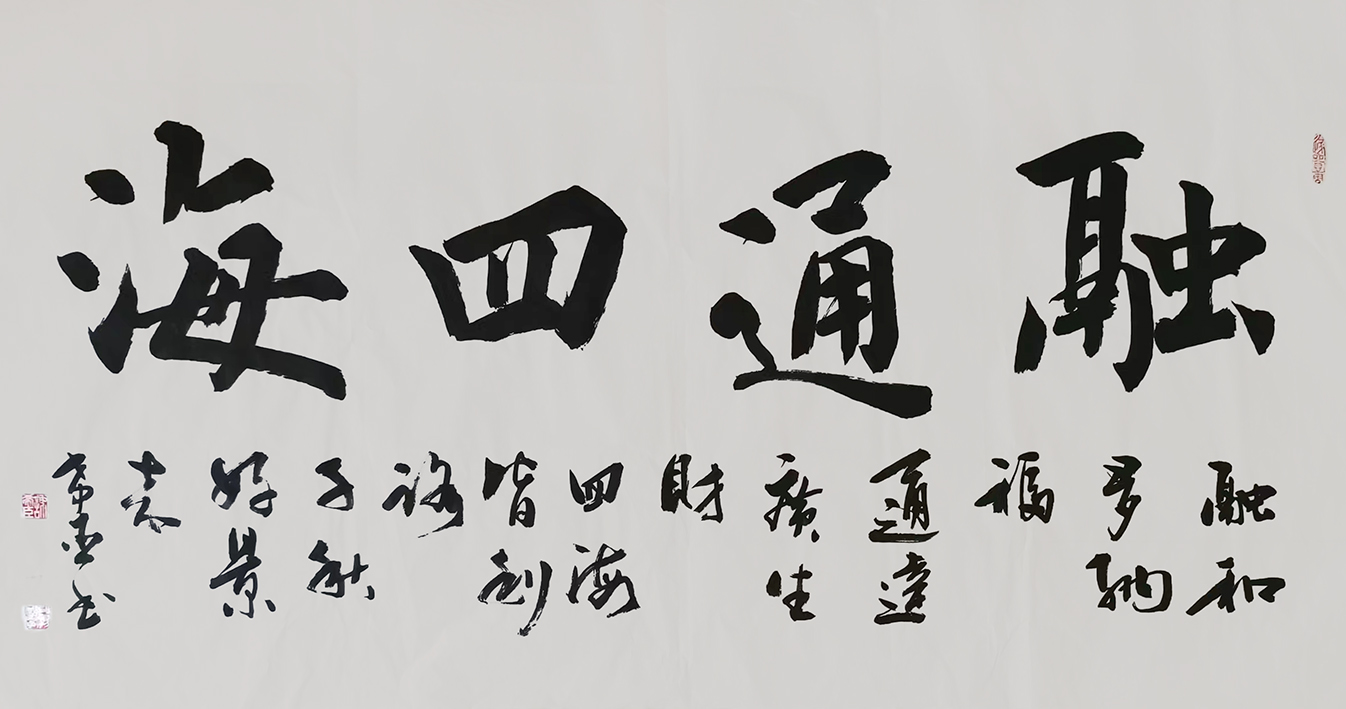 融通四海
融和
多納
福
通達
廣生
財
四海
皆利
路
千秋
好景
来
书